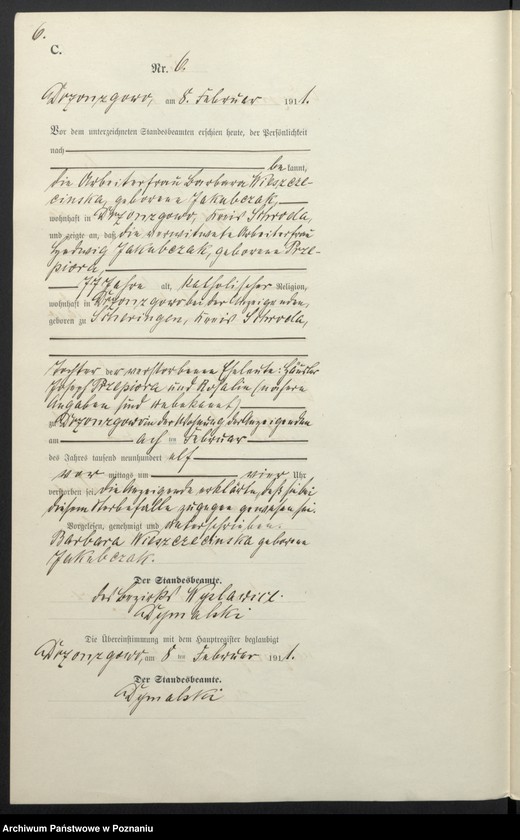 6.
C.
Nr. 6.
Drzonzgowo, am 8. Februar 1911.
Vor dem unterzeichneten Standesbeamten erschien heute, der Persönlichkeit
nach
be kannt,
die Arbeiterfrau Barbara Wieszcze-
cinska, geborene Jakubczak,
wohnhaft in Drzonzgowo, Kreis Schroda,
und zeigte an, daß die verwitwete Arbeiterfrau
Hedwig Jakubczak, geborene Prze-
piora,
77 Jahre alt, katholischer Religion,
wohnhaft in Drzonzgowo bei der Anzeigenden,
geboren zu Kreis Schroda,
Tochter der verstorbenen Eheleute: Häusler
Joseph Przepiora und Rosalie (nähere
Angaben sind unbekannt)
zu Drzonzgowo in der Wohnung der Anzeigenden
am acht ten Februar
des Jahres tausend neunhundert elf
vor mittags um vier Uhr
verstorben sei. Die Anzeigende erklärte, daß sie bei
diesem Sterbefalle zugegen gewesen sei.
Vorgelesen, genehmigt und unterschrieben.
Barbara Wieszczecinska geborene
Jakubczak.
Der Standesbeamte.
des Bezirks
Dymalski
Die Übereinstimmung mit dem Hauptregister beglaubigt
Drzonzgowo, am 8 ten Februar 1911.
Der Standesbeamte.
Dymalski
Archiwum Państwowe w Poznaniu